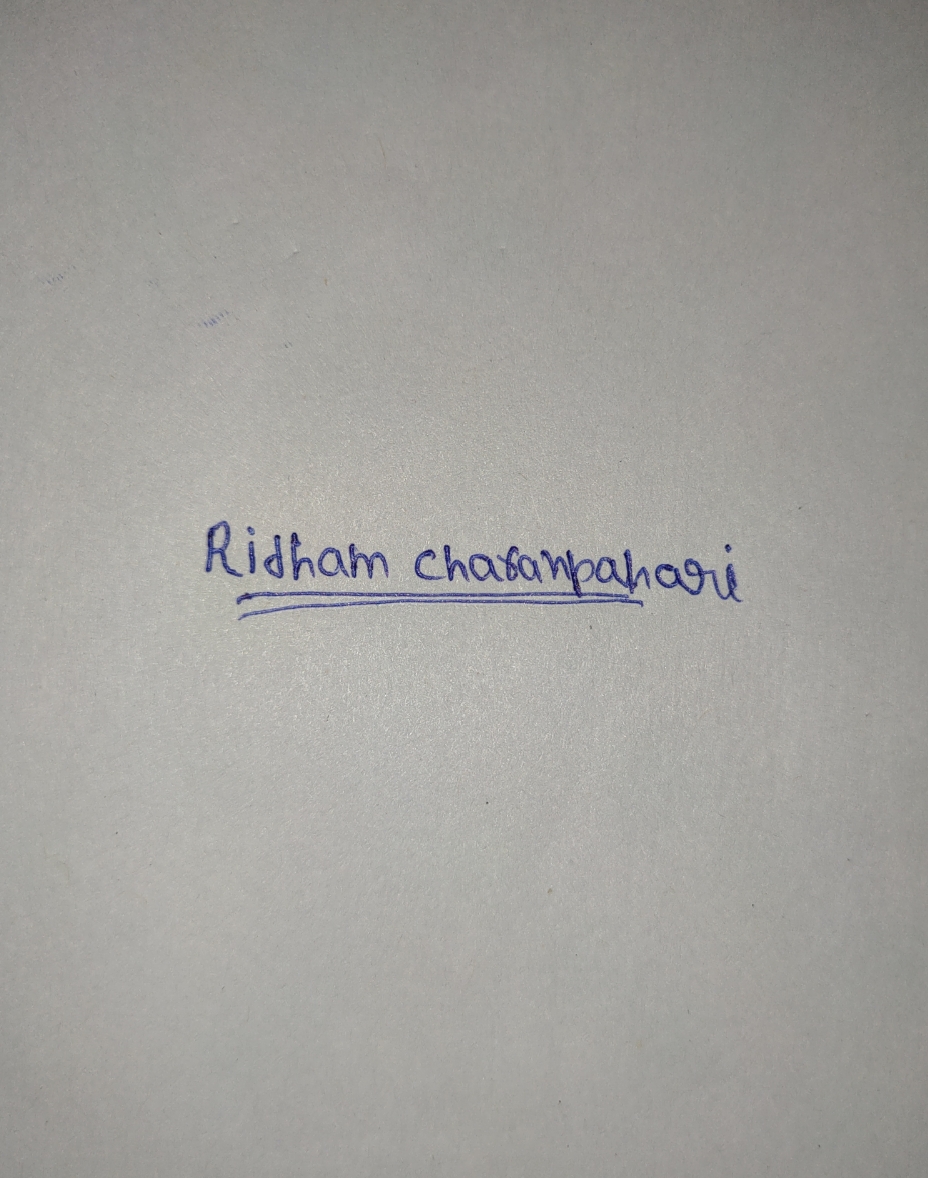 Ridham charanpahari